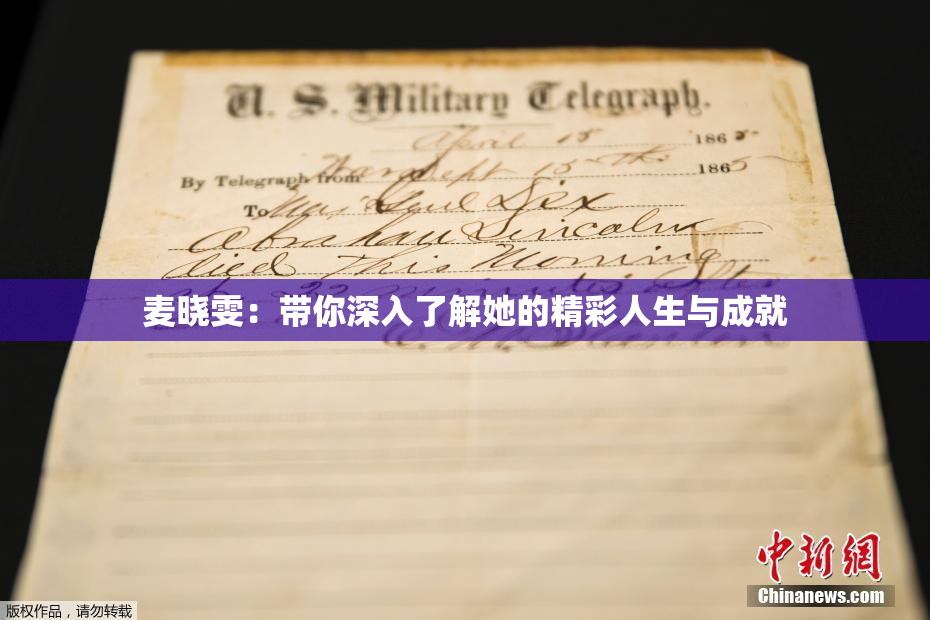 U. S. Military Telegraph.
April 15 1865
By Telegraph from War Dept 15th 1865
To Maj Genl Dix
Abraham Lincoln
died This Morning
at 22 minutes after
麦晓雯：带你深入了解她的精彩人生与成就
E. M. Stanton
中新網
Chinanews.com
版权作品，请勿转载